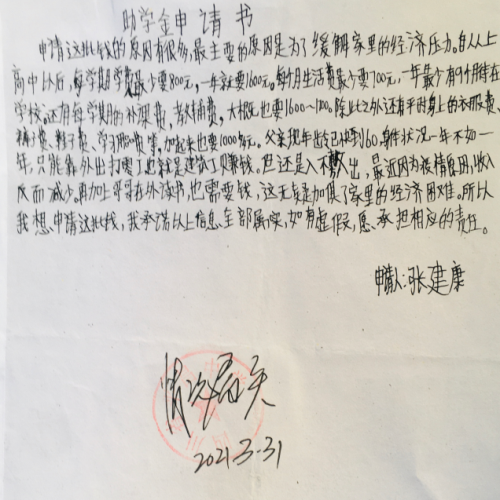 助学金申请书
申请这批钱的原因有很多,最主要的原因是为了缓解家里的经济压力。自从上
高中以后,每学期学费最少要800元,一年就要1600元。每个月生活费最少要700元,一年最少有9个月待在
学校,还有每学期的补课费、教辅费,大概也要1600~1700。除此之外还有平时身上的衣服费、
裤子费、鞋子费、学习用品费等,加起来也要1000多元。父亲现年龄已快到60,身体状况一年不如一
年,只能靠外出打零工也就是建筑工赚钱。但还是入不敷出,最近因为疫情原因,收入
反而减少。再加上哥哥在外读书,也需要钱,这无疑是加俱了家里的经济困难。所以
我想申请这批钱,我承诺以上信息全部属实,如有虚假,愿承担相应的责任。
申请人:张建康
情况属实
2021.3.31